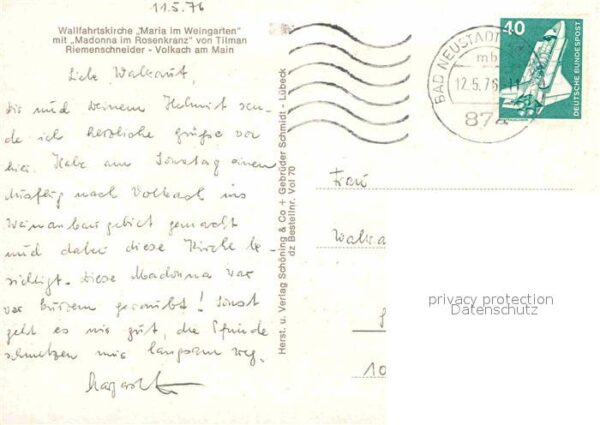 11.5.76
Wallfahrtskirche „Maria im Weingarten"
mit „Madonna im Rosenkranz" von Tilman
Riemenschneider - Volkach am Main
Liebe Waltraut,
dir und deinem Helmut sen-
de ich herzliche Grüße von
hier. Habe am Sonntag einen
Ausflug nach Volkach ins
Weinanbaugebiet gemacht
und dabei diese Kirche be-
sichtigt. Diese Madonna war
vor kurzem geraubt! Sonst
geht es mir gut, die Pfunde
schmelzen nur langsam weg.
Herst. u. Verlag Schöning & Co + Gebrüder Schmidt - Lübeck
dz Bestellnr. Vol 70
BAD NEUSTADT
mb
12.5.76
874
40
DEUTSCHE BUNDESPOST
Frau
10
privacy protection
Datenschutz